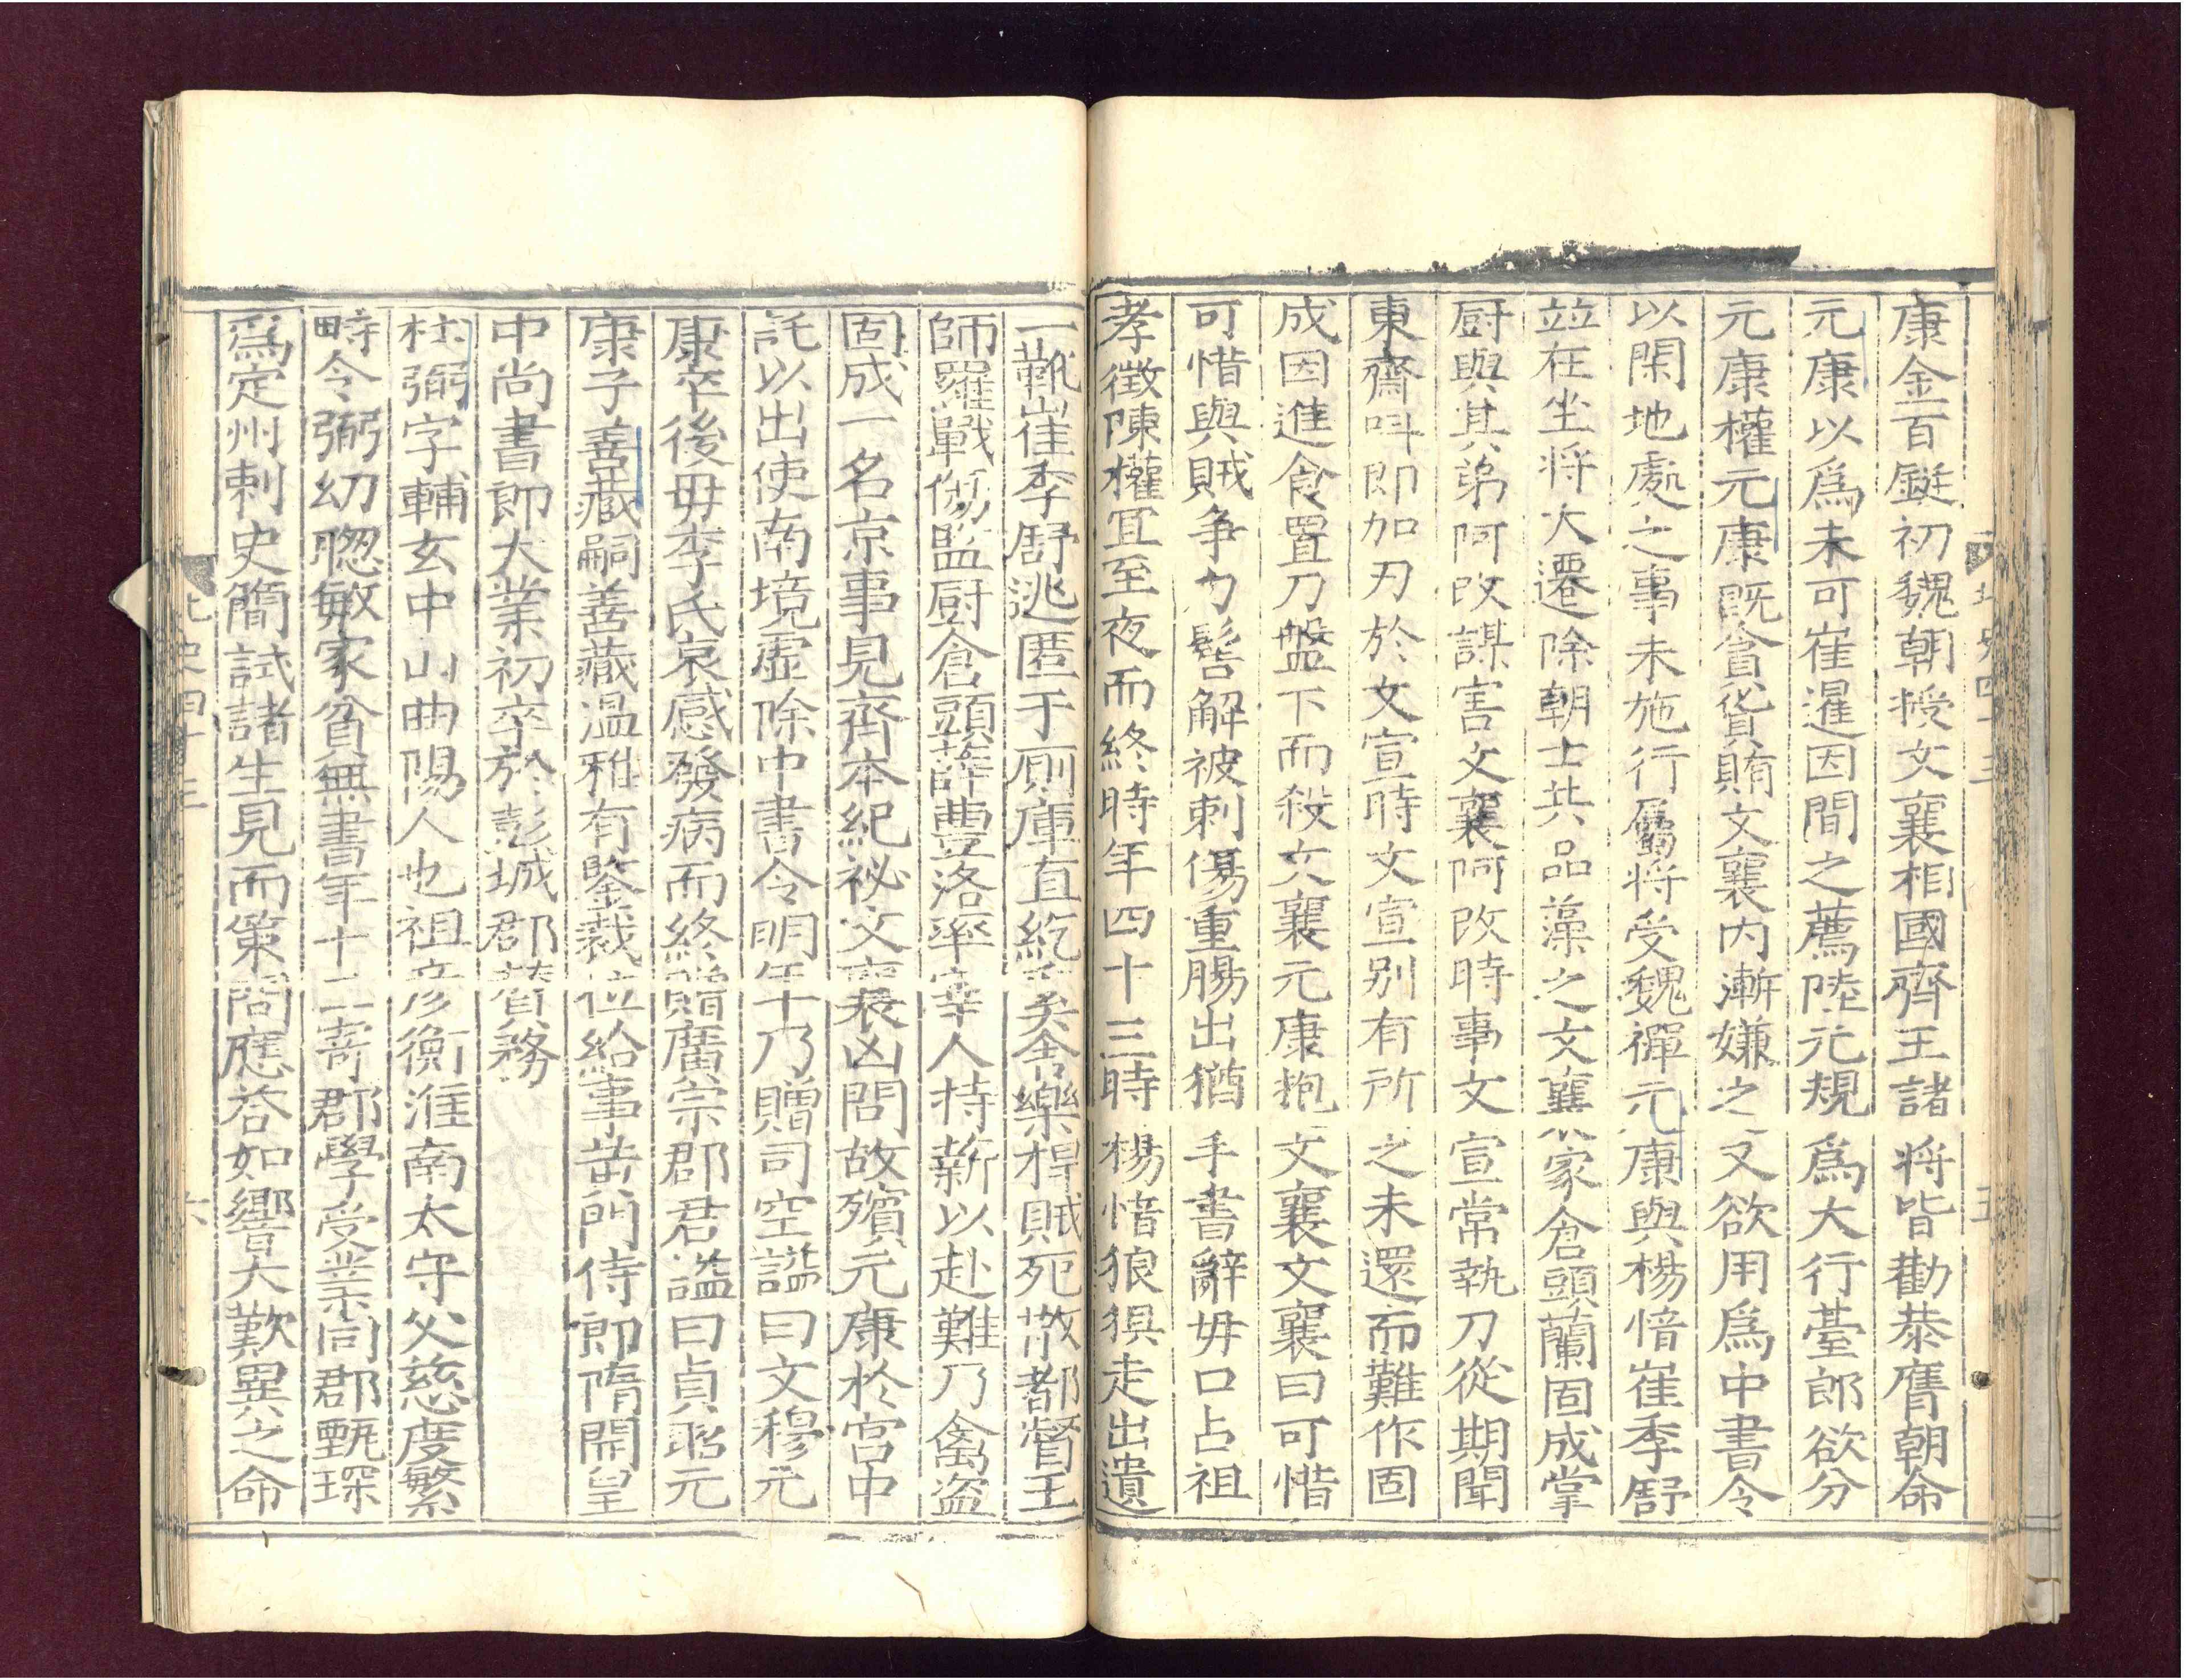 康金百鋌初魏朝授文襄相國齊王諸將皆勸恭膺朝命
元康以爲未可崔暹因間之薦陸元規爲大行臺郎欲分
元康權元康既貪貨賄文襄内漸嫌之又欲用爲中書令
以閑地處之事未施行屬將受魏禪元康與楊愔崔季舒
並在坐將大遷除朝士共品藻之文襄家倉頭蘭固成掌
厨與其弟阿改謀害文襄阿改時事文宣常執刀從期聞
東齋呌即加刃於文宣時文宣别有所之未還而難作固
成因進食置刀盤下而殺文襄元康抱文襄文襄曰可惜
可惜與賊争力髻解被刺傷重腸出猶手書辭母口占祖
孝徵陳權宜至夜而終時年四十三時楊愔狼狽走出遺
一靴崔季舒逃匿于厠庫直紇奚舍樂捍賊死散都督王
師羅戰傷監厨倉頭薛豊洛率宰人持薪以赴難乃禽盜
固成一名京事見齊本紀祕文襄凶問故殯元康於宫中
託以出使南境虚除中書令明年乃贈司空謚曰文穆元
康卒後母李氏哀感發病而終贈廣宗郡君謚曰貞昭元
康子善藏嗣善藏温雅有鑒裁位給事黄門侍郎隋開皇
中尚書郎大業初卒於彭城郡賛務
杜弼字輔玄中山曲陽人也祖彦衡淮南太守父慈度繁
畤令弼幼聦敏家貧無書年十二寄郡學受業同郡甄琛
爲定州刺史簡試諸生見而策問應荅如響大歎異之命
北史四十三
五
北史四十三
六